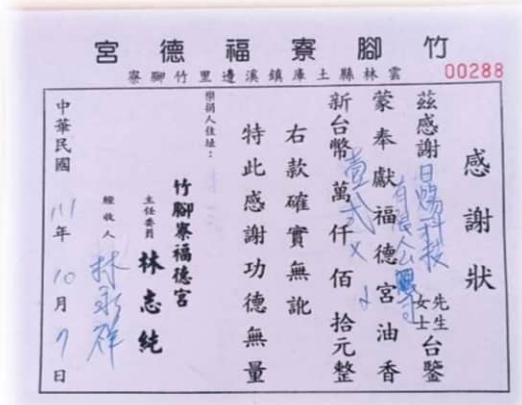 竹腳寮福德宮
雲林縣土庫鎮溪邊里竹腳寮
00288
感謝狀
茲感謝日暘科技有限公司先生女士台鑒
蒙奉獻福德宮油香
新台幣壹萬貳仟X佰拾元整
右款確實無訛
特此感謝功德無量
樂捐人住址：
竹腳寮福德宮
主任委員 林志純
經收人 林永祥
中華民國111年10月日